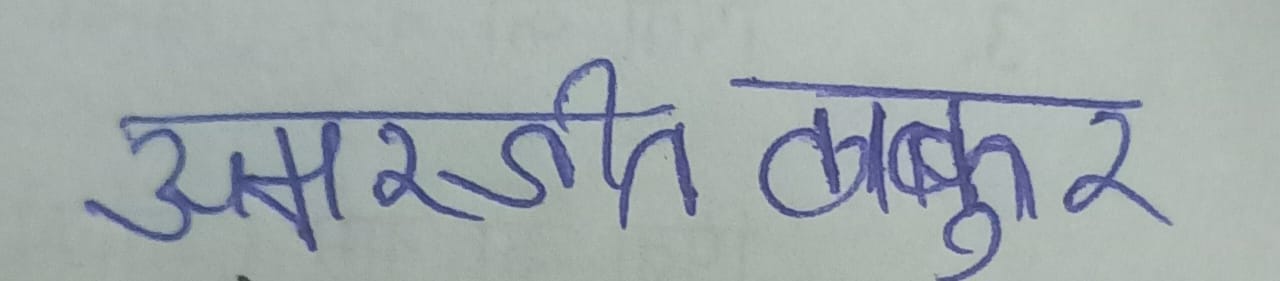 अमरजीत ठाकुर